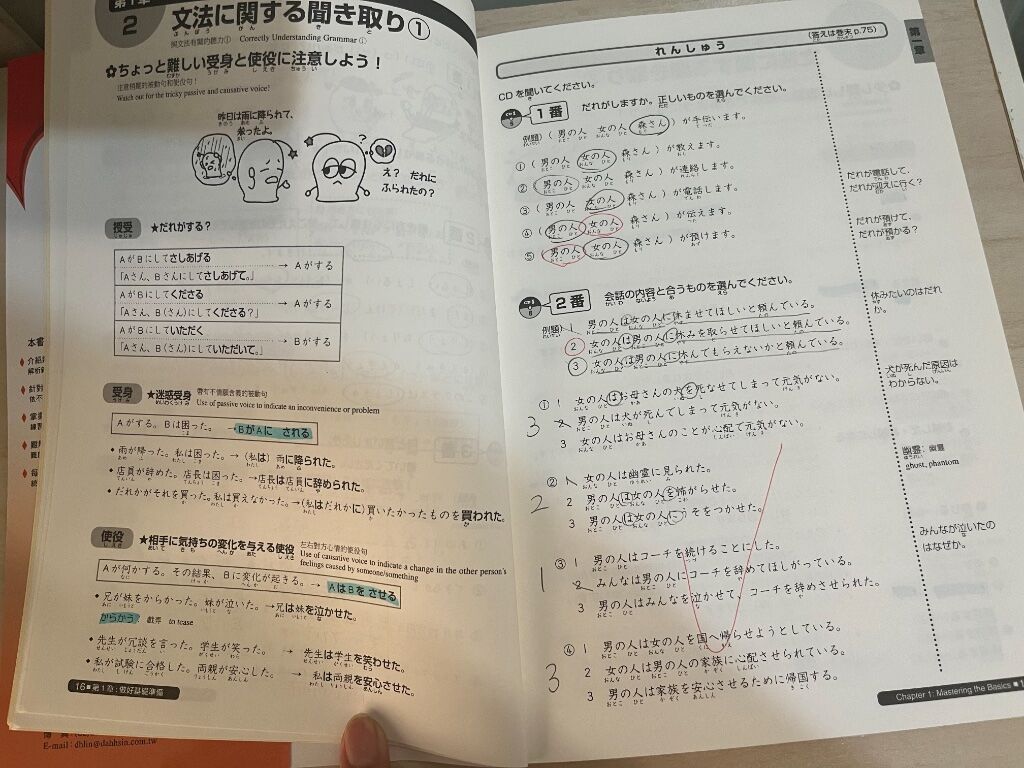 第1章
2
文法に関する聞き取り①
與文法有關的聽力① Correctly Understanding Grammar①
✿ちょっと難しい受身と使役に注意しよう!
注意稍難的被動句和使役句!
Watch out for the tricky passive and causative voice!
昨日は雨に降られて、
参ったよ。
?
え? だれに
ふられたの?
授受 ★だれがする?
AがBにしてさしあげる
「Aさん、Bさんにしてさしあげて。」 → Aがする
AがBにしてくださる
「Aさん、B(さん)にしてくださる?」 → Aがする
AがBにしていただく
「Aさん、B(さん)にしていただいて。」 → Bがする
受身 ★迷惑受身
帶有不情願含義的被動句
Use of passive voice to indicate an inconvenience or problem
Aがする。Bは困った。 →BがAに される
・雨が降った。私は困った。→(私は)雨に降られた。
・店員が辞めた。店長は困った。→店長は店員に辞められた。
・だれかがそれを買った。私は買えなかった。→(私はだれかに)買いたかったものを買われた。
使役 ★相手に気持ちの変化を与える使役
左右對方心情的使役句
Use of causative voice to indicate a change in the other person's
feelings caused by someone/something
Aが何かする。その結果、Bに変化が起きる。→ AはBを させる
・兄が妹をからかった。妹が泣いた。→兄は妹を泣かせた。
からかう: 戲弄 to tease
・先生が冗談を言った。学生が笑った。 → 先生は学生を笑わせた。
・私が試験に合格した。両親が安心した。 → 私は両親を安心させた。
16■第1章:做好基礎準備
E-mail : dhlin@dahhsin.com.tw
第一章
れんしゅう
(答えは巻末 p.75)
CDを聞いてください。
1番 だれがしますか。正しいものを選んでください。
例題)( 男の人 女の人 森さん )が手伝います。
①( 男の人 女の人 森さん )が教えます。
②( 男の人 女の人 森さん )が連絡します。
③( 男の人 女の人 森さん )が電話します。
④( 男の人 女の人 森さん )が伝えます。
⑤( 男の人 女の人 森さん )が預けます。
だれが電話して、
だれが迎えに行く?
だれが預けて、
だれが預かる?
2番 会話の内容と合うものを選んでください。
例題) 1 男の人は女の人に休ませてほしいと頼んでいる。
2 女の人は男の人に休みを取らせてほしいと頼んでいる。
3 女の人は男の人に休んでもらえないかと頼んでいる。
休みたいのはだれ
か。
① 1 女の人はお母さんの犬を死なせてしまって元気がない。
3 2 女の人は犬が死んでしまって元気がない。
3 女の人はお母さんのことが心配で元気がない。
犬が死んだ原因は
わからない。
② 1 女の人は幽霊に見られた。
2 2 男の人は女の人を怖がらせた。
3 男の人は女の人にうそをつかせた。
幽霊: 幽靈
ghost, phantom
③ 1 男の人はコーチを続けることにした。
1 2 みんなは男の人にコーチを辞めてほしがっている。
3 男の人はみんなを泣かせて、コーチを辞めさせられた。
みんなが泣いたの
はなぜか。
④ 1 男の人は女の人を国へ帰らせようとしている。
3 2 女の人は男の人の家族に心配させられている。
3 男の人は家族を安心させるために帰国する。
Chapter 1: Mastering the Basics ■